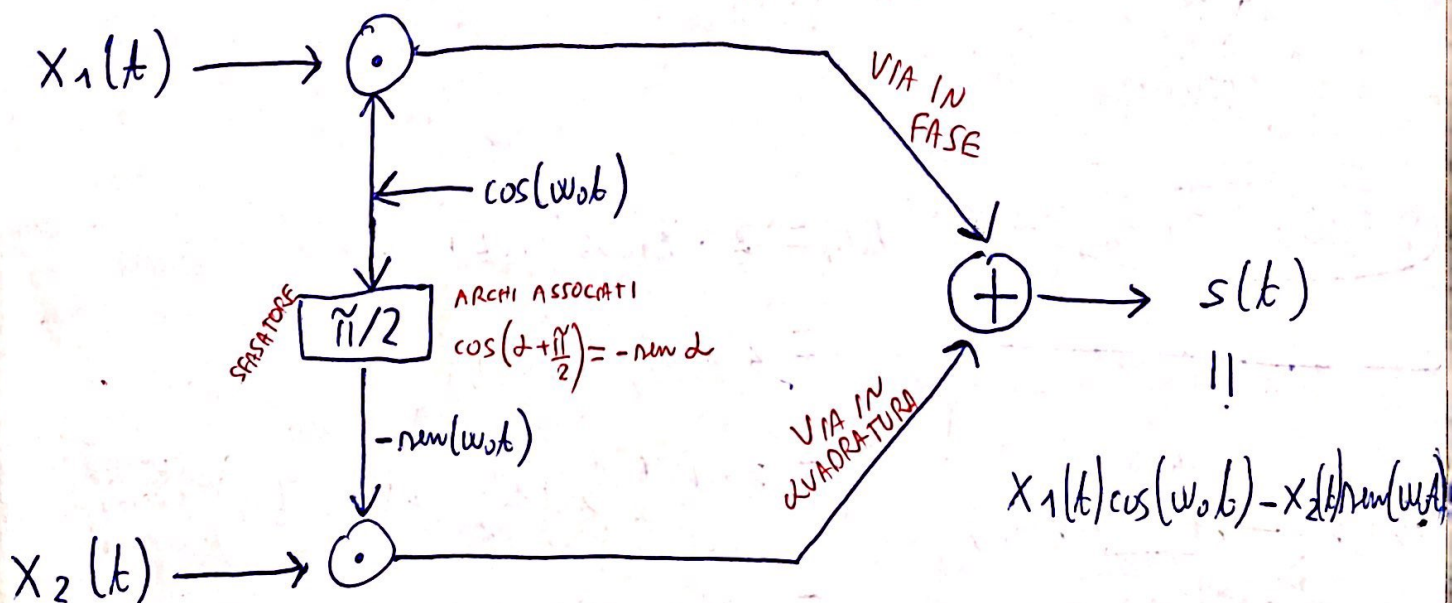 x₁(t)
VIA IN
FASE
cos(ω₀t)
SFASATORE
π/2
ARCHI ASSOCIATI
cos(α+π/2)=-sen α
s(t)
-sen(ω₀t)
VIA IN
QUADRATURA
x₁(t)cos(ω₀t)-x₂(t)sen(ω₀t)
x₂(t)